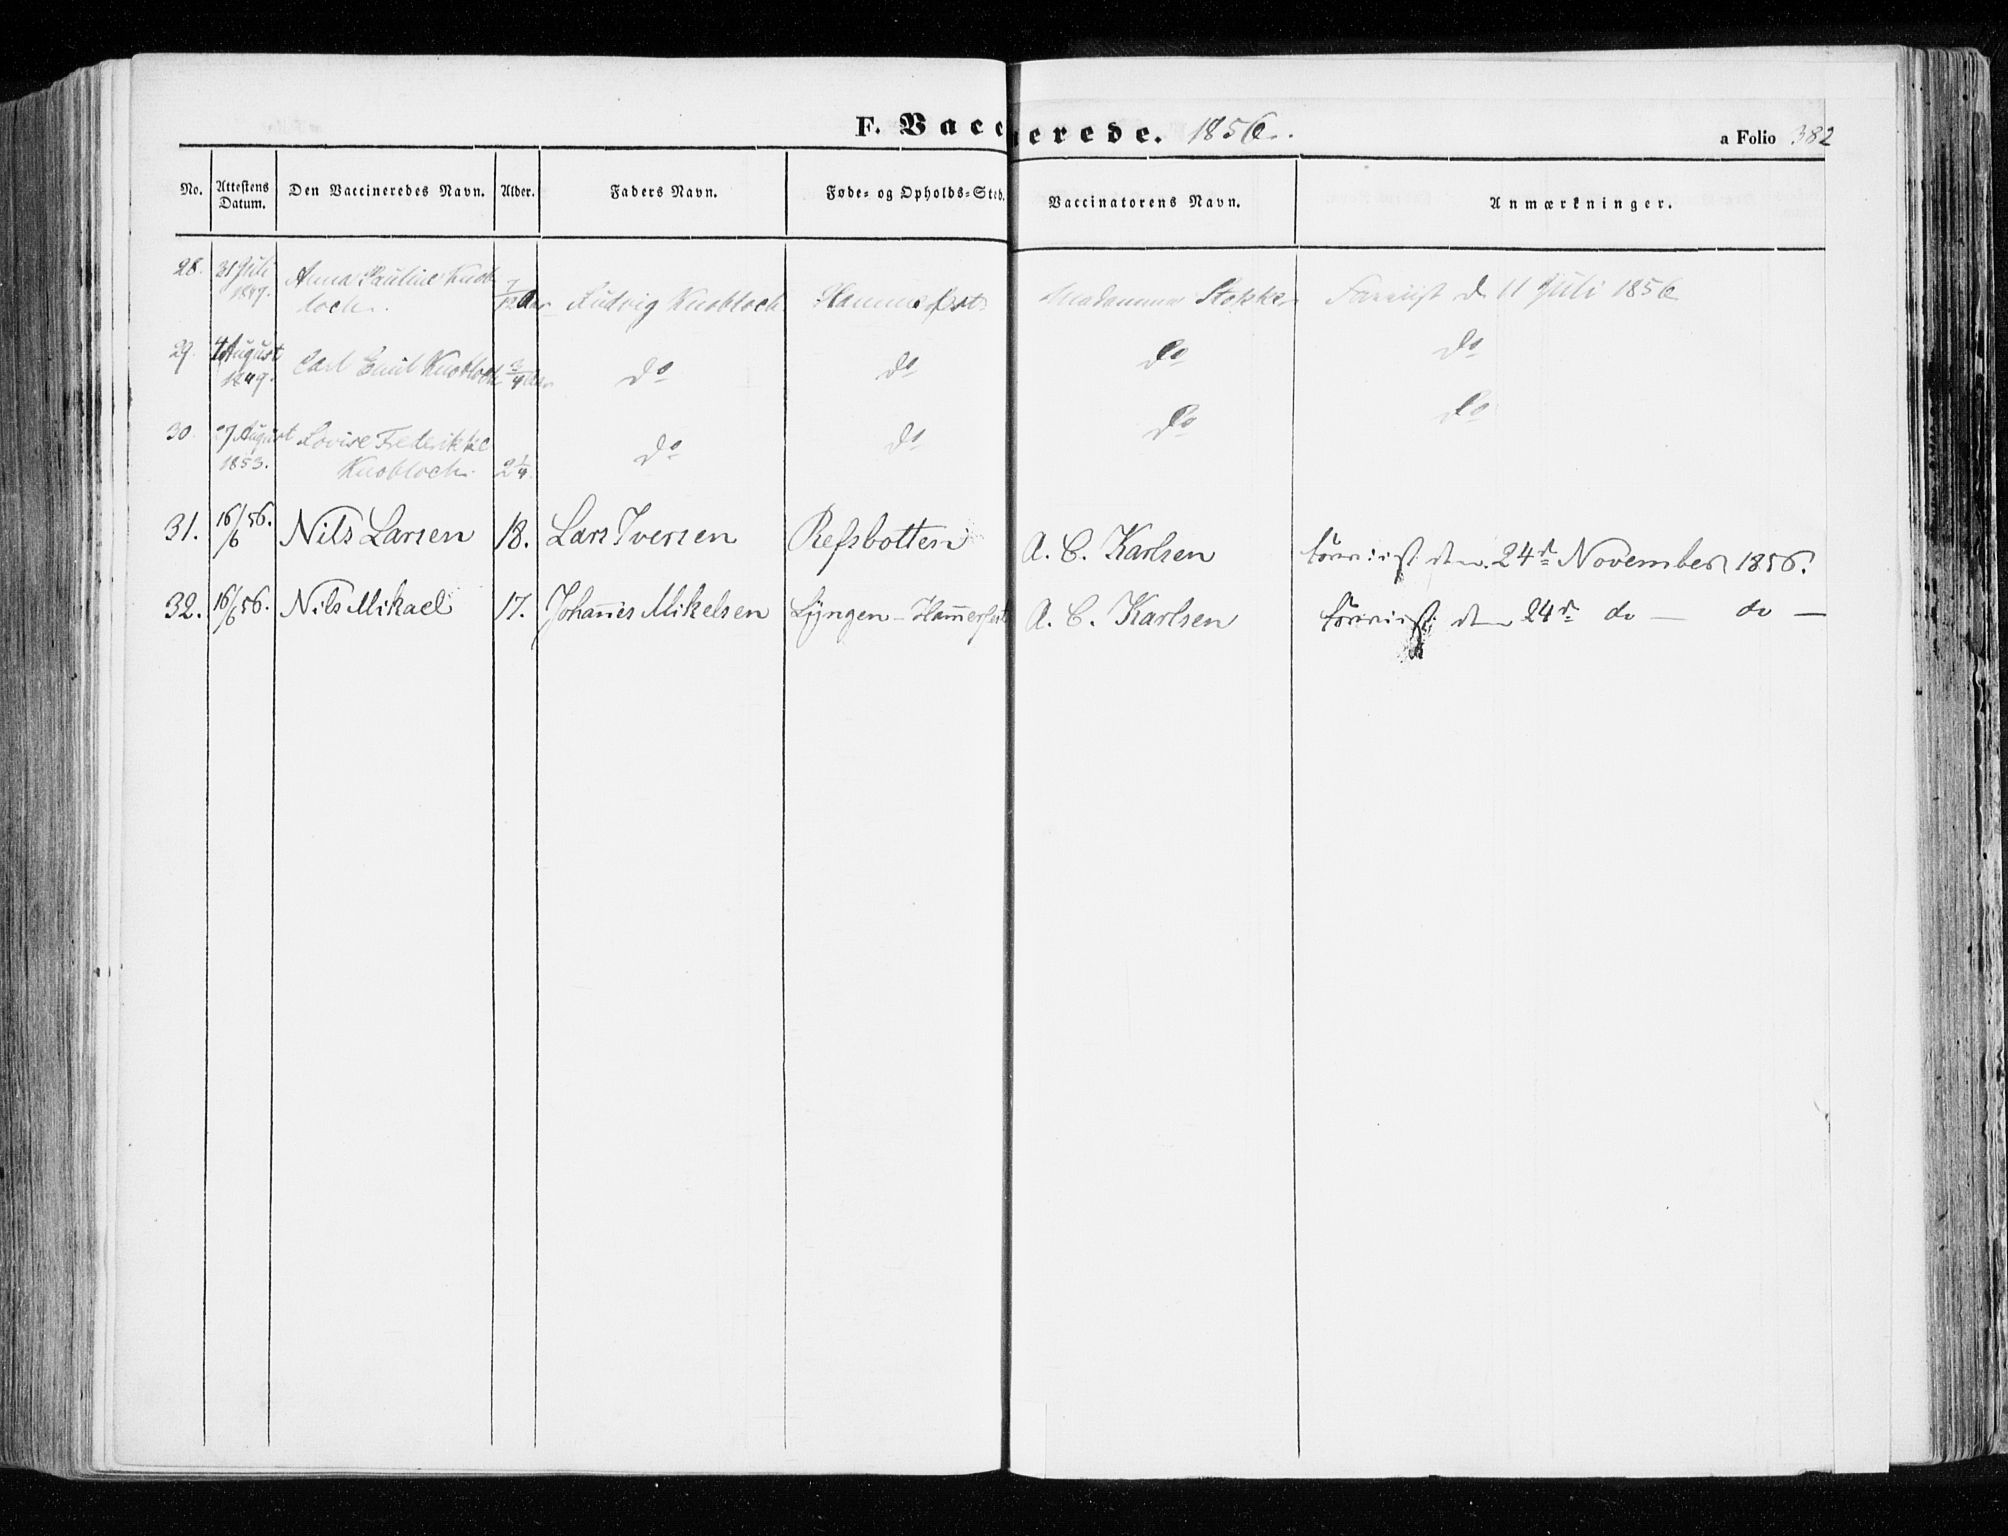 F. Vaccinerede. 1856.
a Folio 382
No. Attestens Datum. Den Vaccineredes Navn. Alder. Faders Navn. Føde- og Opholds-Sted. Vaccinatorens Navn. Anmærkninger.
28. 31 Juli Anna Pauline Knob- 7/12 Aar Ludvig Knobloch Hammerfest Madamme Stokke Foreviist d 11 Juli 1856
1849. loch.
29. 4 August Carl Emil Knobloch 3/4 Aar do do do do
1849.
30. 27 August Lovise Frederikke do do do do
1853. Knobloch. 2 1/4
31. 16/6 56. Nils Larsen 18. Lars Iversen Refsbotten A. C. Karlsen foreviist den 24d November 1856.
32. 16/6 56. Nils Mikael 17. Johannes Mikelsen Lyngen - Hammerfest A. C. Karlsen foreviist den 24d do — do —